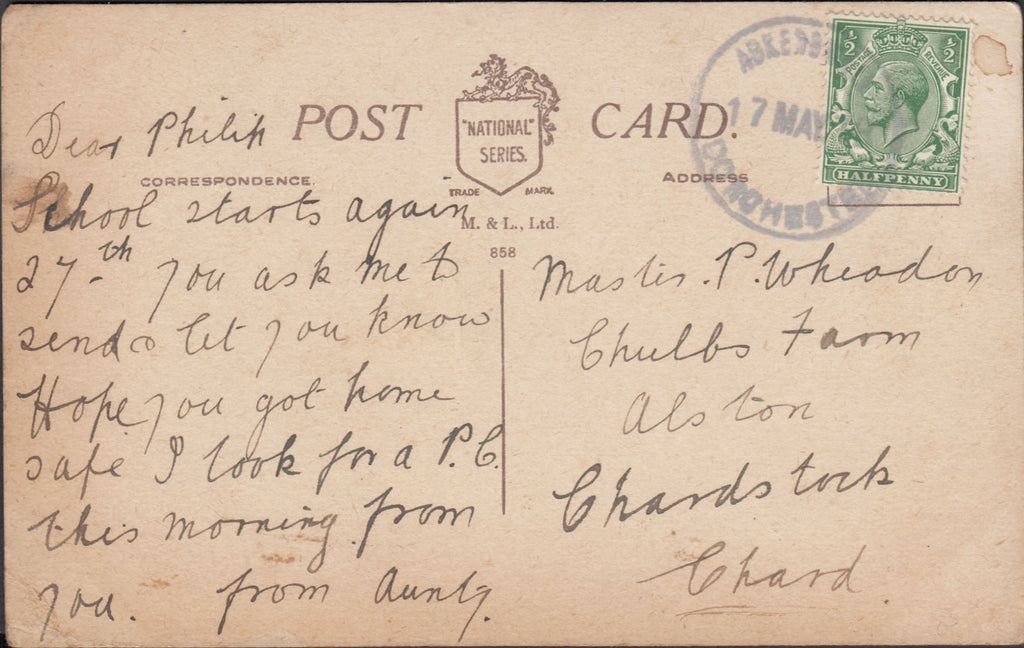 POST CARD.
"NATIONAL"
SERIES.
TRADE MARK
M. & L., Ltd.
858
CORRESPONDENCE.
Dear Philip
School starts again
27-th you ask me to
send & let you know
Hope you got home
safe I look for a P.C.
this morning from
you. from Aunty.
ADDRESS
Master. P. Wheadon
Chulbs Farm
Alston
Chardstock
Chard.
17 MAY
½ ½
POSTAGE REVENUE
HALFPENNY